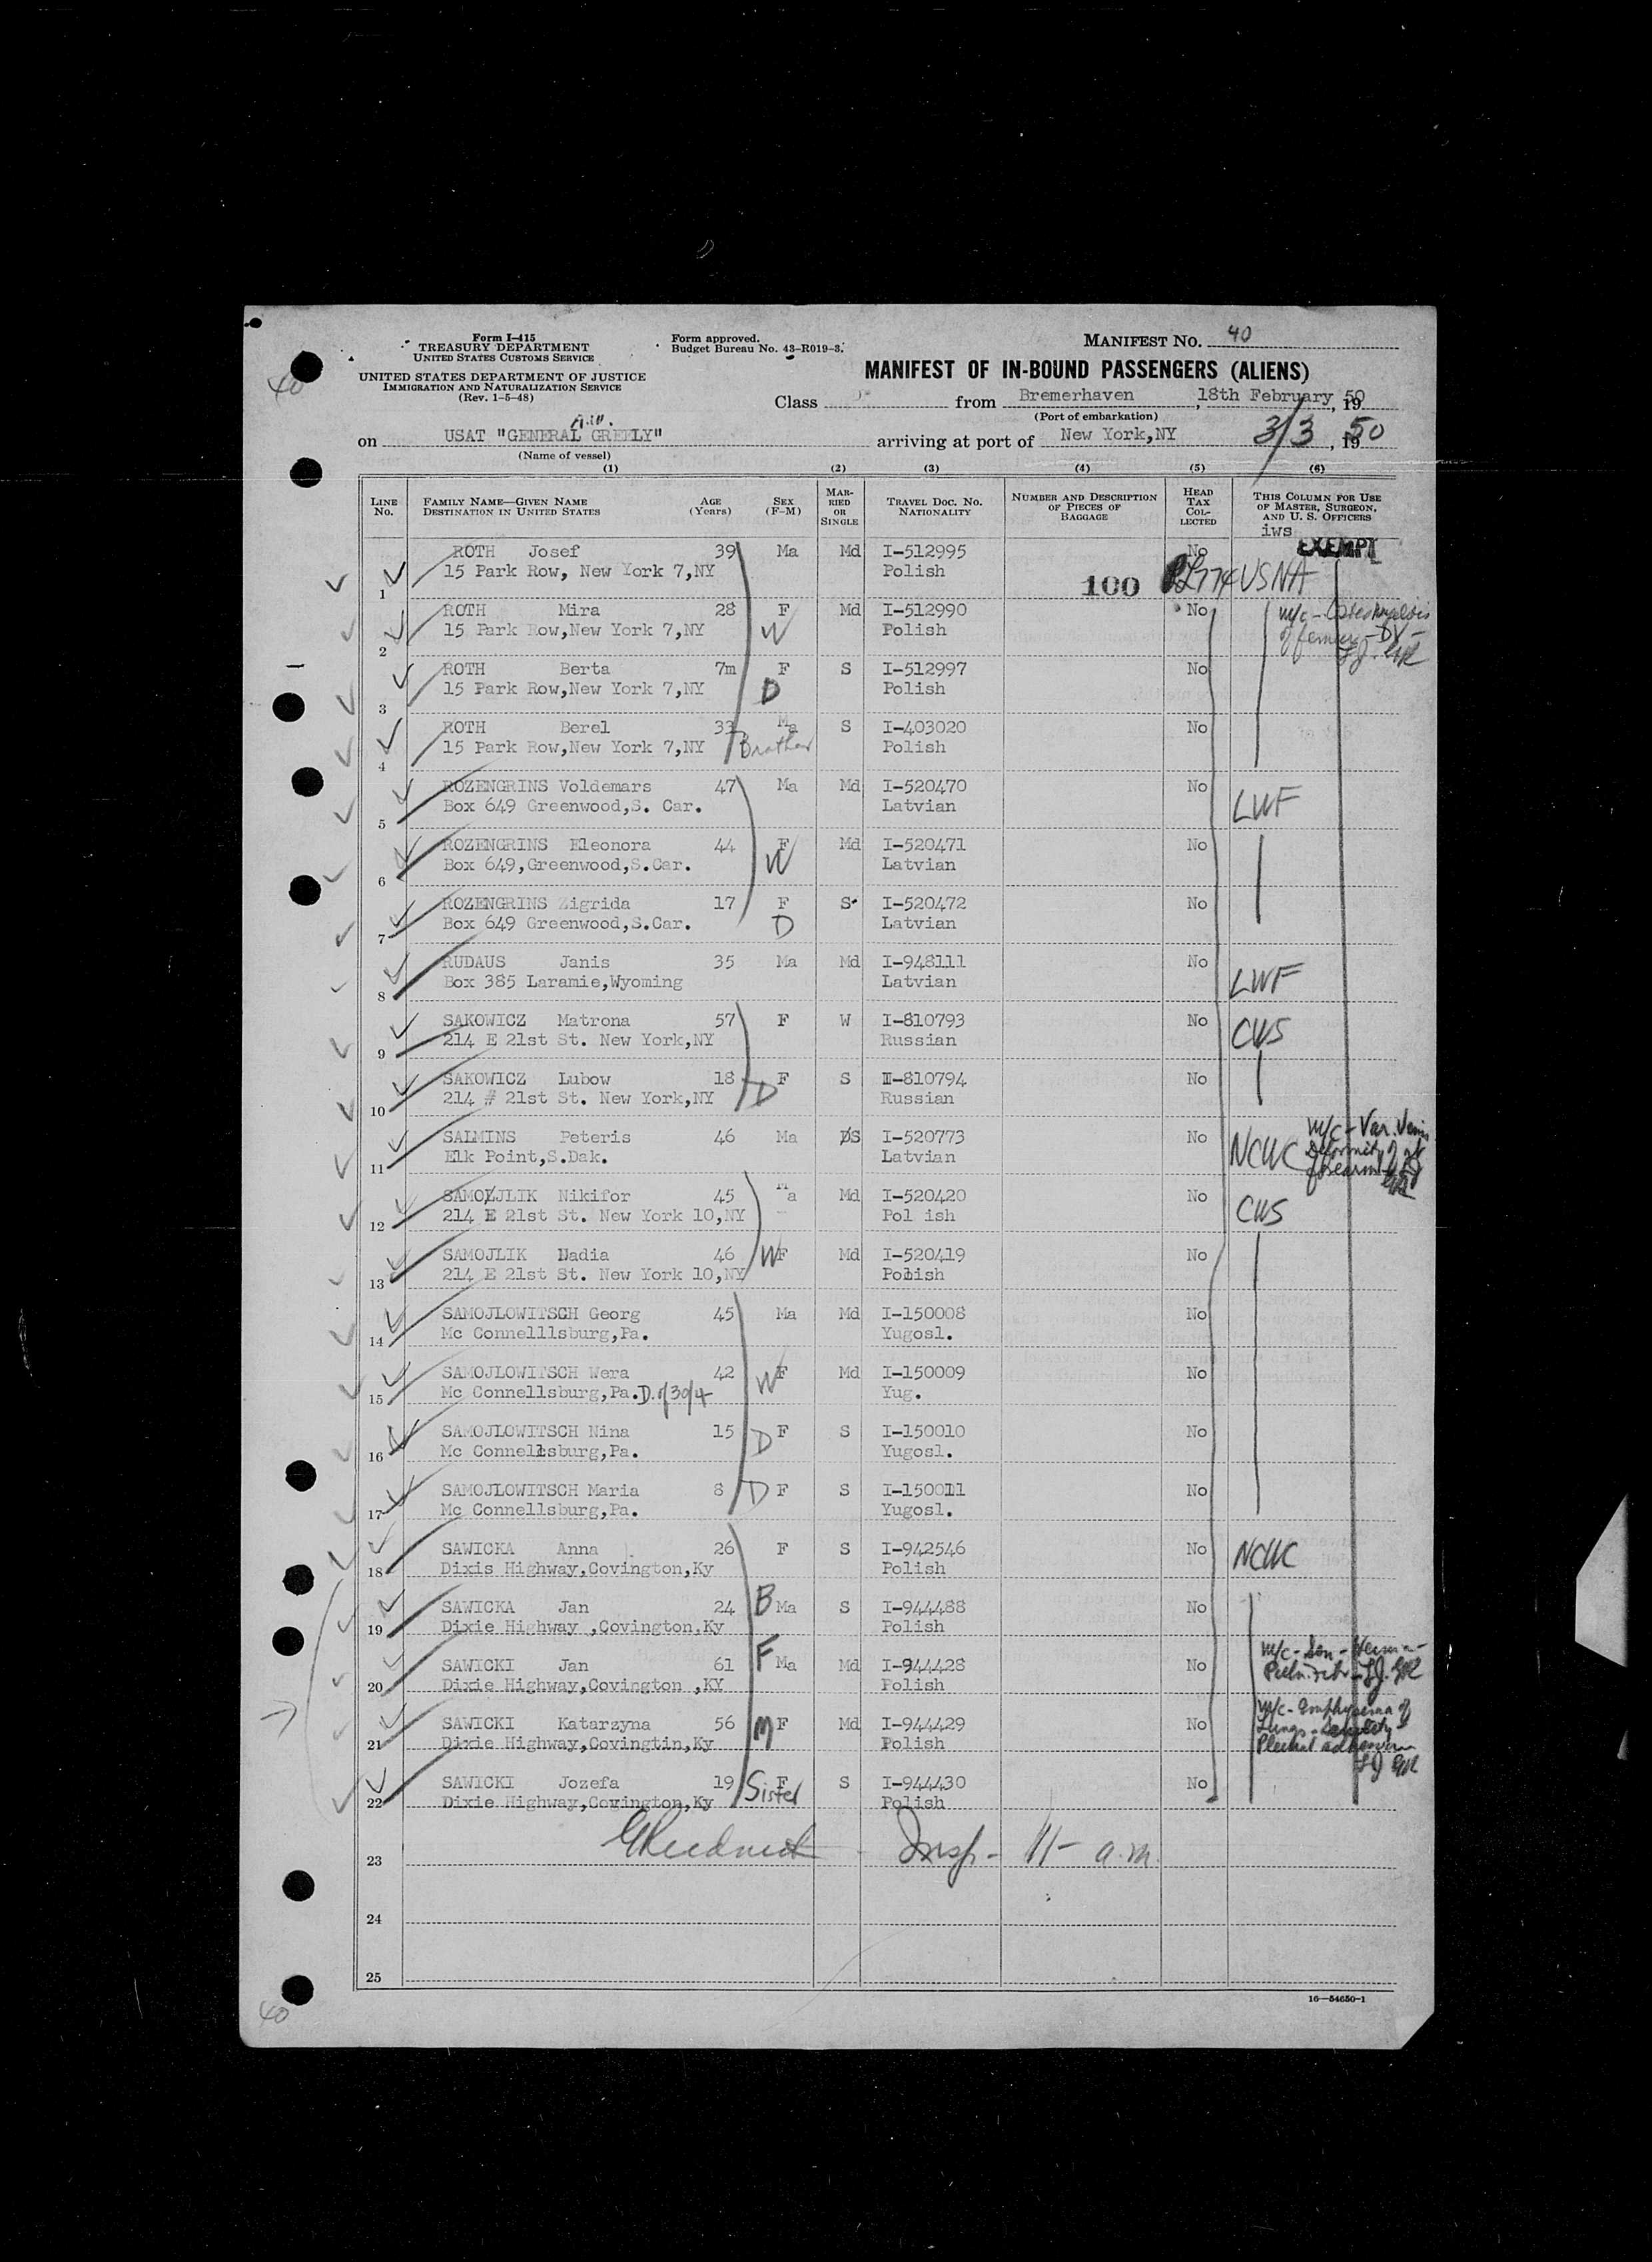 Form I-415
TREASURY DEPARTMENT
UNITED STATES CUSTOMS SERVICE
UNITED STATES DEPARTMENT OF JUSTICE
IMMIGRATION AND NATURALIZATION SERVICE
(Rev. 1-5-48)
Form approved.
Budget Bureau No. 43-R019-3.
MANIFEST NO. 40
40
MANIFEST OF IN-BOUND PASSENGERS (ALIENS)
Class from Bremerhaven, 18th February, 1950
(Port of embarkation)
on USAT "GENERAL GREELY"
(Name of vessel)
arriving at port of New York,NY 3/3, 1950
(1) (2) (3) (4) (5) (6)
LINE No. FAMILY NAME—GIVEN NAME DESTINATION IN UNITED STATES AGE (Years) SEX (F-M) MARRIED OR SINGLE TRAVEL DOC. NO. NATIONALITY NUMBER AND DESCRIPTION OF PIECES OF BAGGAGE HEAD TAX COLLECTED THIS COLUMN FOR USE OF MASTER, SURGEON, AND U. S. OFFICERS
iws
EXEMPT
1 ROTH Josef 39 Ma Md I-512995 No
15 Park Row, New York 7,NY Polish 100 PL774 USNA
2 ROTH Mira 28 F Md I-512990 No
15 Park Row,New York 7,NY W Polish
3 ROTH Berta 7m F S I-512997 No
15 Park Row,New York 7,NY D Polish
4 ROTH Berel 33 Ma S I-403020 No
15 Park Row,New York 7,NY Brother Polish
5 ROZENGRINS Voldemars 47 Ma Md I-520470 No
Box 649 Greenwood,S. Car. Latvian LWF
6 ROZENGRINS Eleonora 44 F Md I-520471 No
Box 649,Greenwood,S.Car. W Latvian
7 ROZENGRINS Zigrida 17 F S I-520472 No
Box 649 Greenwood,S.Car. D Latvian
8 RUDAUS Janis 35 Ma Md I-948111 No
Box 385 Laramie,Wyoming Latvian LWF
9 SAKOWICZ Matrona 57 F W I-810793 No
214 E 21st St. New York,NY Russian CWS
10 SAKOWICZ Lubow 18 F S I-810794 No
214 # 21st St. New York,NY D Russian
11 SALMINS Peteris 46 Ma S I-520773 No
Elk Point,S.Dak. Latvian NCWC m/c - Var. Veins
Deformity of
forearm
12 SAMOJLIK Nikifor 45 Ma Md I-520420 No
214 E 21st St. New York 10,NY Pol ish CWS
13 SAMOJLIK Nadia 46 W F Md I-520419 No
214 E 21st St. New York 10,NY Polish
14 SAMOJLOWITSCH Georg 45 Ma Md I-150008 No
Mc Connelllsburg,Pa. Yugosl.
15 SAMOJLOWITSCH Wera 42 W F Md I-150009 No
Mc Connellsburg,Pa. D. of 30/4 Yug.
16 SAMOJLOWITSCH Nina 15 D F S I-150010 No
Mc Connellsburg,Pa. Yugosl.
17 SAMOJLOWITSCH Maria 8 D F S I-150011 No
Mc Connellsburg,Pa. Yugosl.
18 SAWICKA Anna 26 F S I-942546 No
Dixis Highway,Covington,Ky Polish NCWC
19 SAWICKA Jan 24 B Ma S I-944488 No
Dixie Highway ,Covington,Ky Polish
20 SAWICKI Jan 61 F Ma Md I-944428 No
Dixie Highway,Covington ,KY Polish
21 SAWICKI Katarzyna 56 M F Md I-944429 No m/c - Emphysema of
Dixie Highway,Covingtin,Ky Polish Lungs
22 SAWICKI Jozefa 19 Sister F S I-944430 No
Dixie Highway,Covington,Ky Polish
23 Insp- 11- a.m.
24
25
16—54650-1
40